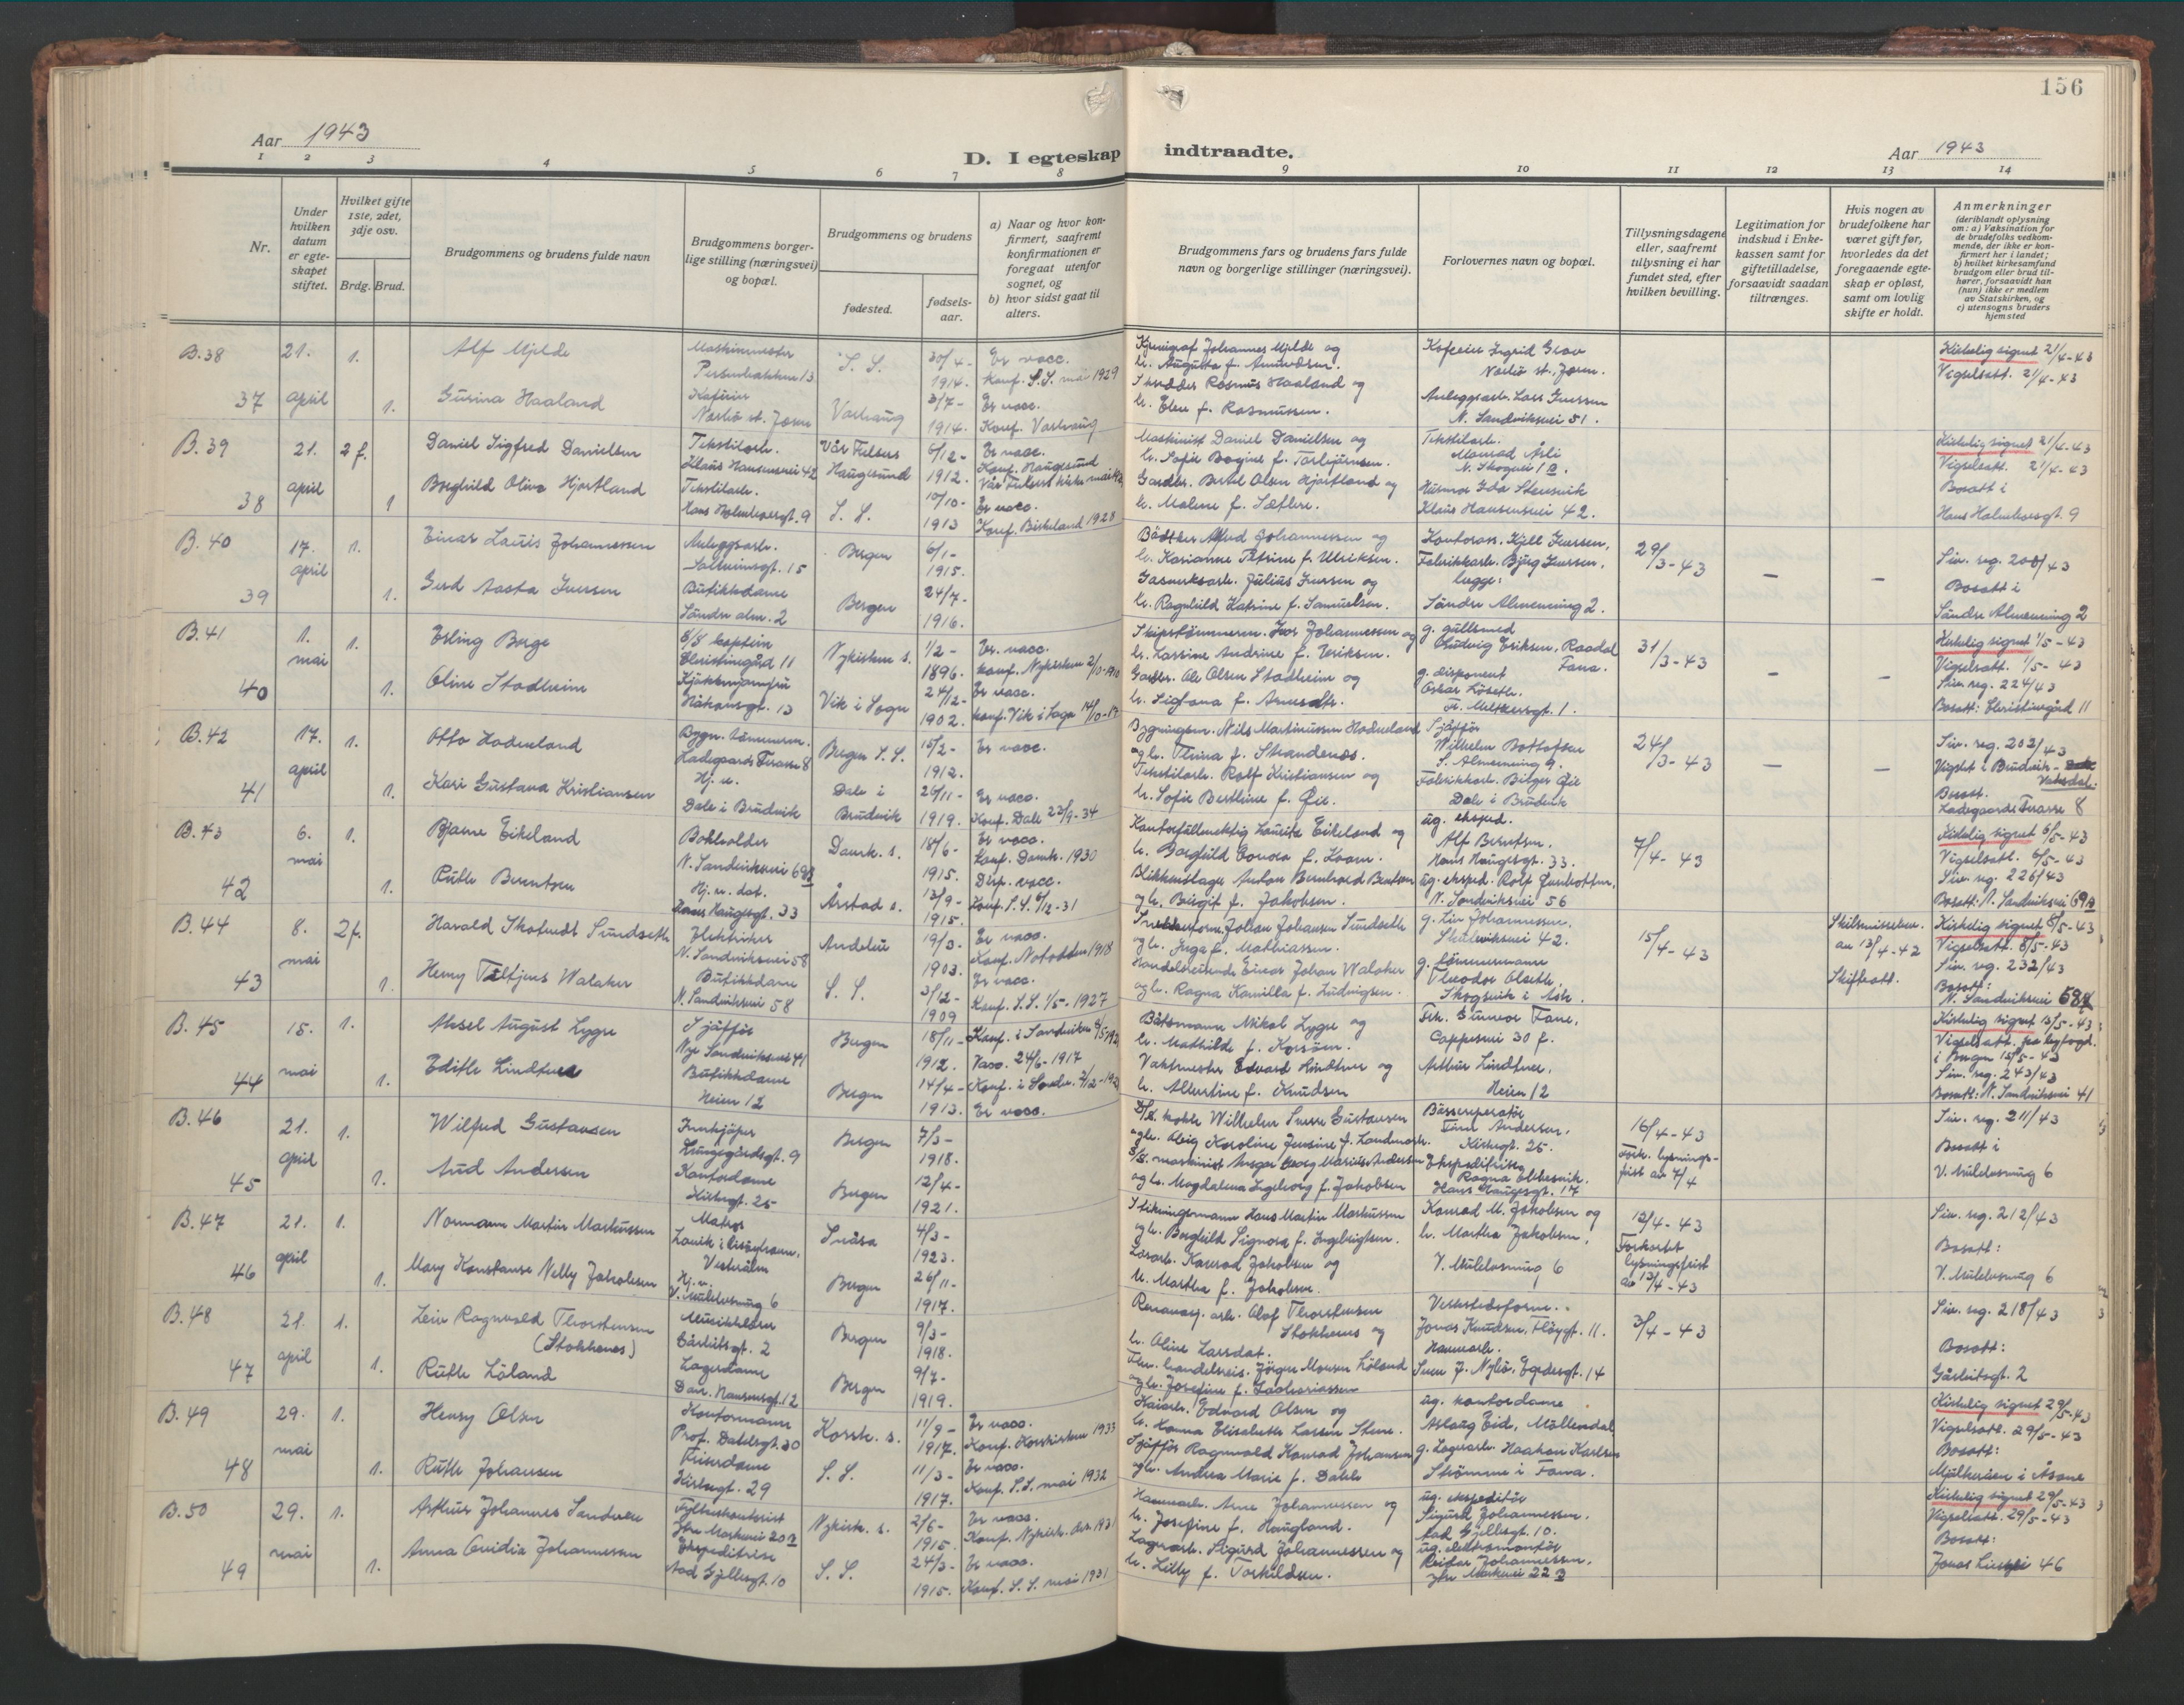 156
Aar 1943
D. I egteskap indtraadte.
Aar 1943
1 2 3 4 5 6 7 8 9 10 11 12 13 14
Nr.
Under hvilken datum er egteskapet stiftet.
Hvilket gifte 1ste, 2det, 3dje osv.
Brdg. Brud.
Brudgommens og brudens fulde navn
Brudgommens borgerlige stilling (næringsvei) og bopæl.
Brudgommens og brudens
fødested.
fødselsaar.
a) Naar og hvor konfirmert, saafremt konfirmationen er foregaat utenfor sognet, og
b) hvor sidst gaat til alters.
Brudgommens fars og brudens fars fulde navn og borgerlige stillinger (næringsvei).
Forlovernes navn og bopæl.
Tillysningsdagene eller, saafremt tillysning ei har fundet sted, efter hvilken bevilling.
Legitimation for indskud i Enkekassen samt for giftetilladelse, forsaavidt saadan tiltrænges.
Hvis nogen av brudefolkene har været gift før, hvorledes da det foregaaende egteskap er opløst, samt om lovlig skifte er holdt.
Anmerkninger
(deriblandt oplysning om: a) Vaksination for de brudefolks vedkommende, der ikke er konfirmert her i landet; b) hvilket kirkesamfund brudgom eller brud tilhører, forsaavidt han (hun) ikke er medlem av Statskirken, og c) utensogns bruders hjemsted
B.38 21. april 1. Alf Mjelde Maskinmester S. S. 30/4- 1914. Er vacc. Konf. S.S. mai 1929
Johannes Mjelde og h. Augusta f. Amundsen.
Ingrid Grov Nærbø st., Jæren.
Kirkelig signet 21/4-43
Vigselsatt. 21/4-43
37 1. Gurina Haaland Nærbø st. Jæren Varhaug 3/7- 1914. Er vacc. Konf. Varhaug
Rasmus Haaland og h. Elen f. Rasmussen.
Anleggsarb. Lars Iversen N. Sandviksvei 51.
B.39 21. april 2 f. Daniel Sigfred Danielsen Tekstilarb. Klaus Hansensvei 42 Vår Frelsers Haugesund 6/12- 1912. Er vacc. Konf. Haugesund
Maskinist Daniel Danielsen og h. Sofie f. Torbjørnsen.
Tekstilarb. Monrad Åsli N. Skogvei
Kirkelig signet 21/4-43
Vigselsatt. 21/4-43
Bosatt i Hans Holmboesgt. 9
38 1 Borghild Oliva Hjortland Tekstilarb. Hans Holmboesgt. 9 S. S. 10/10- 1913 Er vacc. Konf. Birkeland 1928
Gardbr. Bertel Olsen Hjortland og h. Malene f. Sætere.
Husmor Ida Stensvik Klaus Hansensvei 42.
B.40 17. april 1. Einar Lauis Johannessen Anleggsarb. 15 Bergen 6/1- 1915.
Johannessen og h. Karianne Petrine f. Ulriksen.
Kontorass. Kjell Iversen, Fabrikkarb. Bjørg Iversen, begge: Søndre Almenning 2.
29/3-43 – –
Siv. reg. 208/43
Bosatt i Søndre Almenning 2
39 1. Gerd Aasta Iversen Butikkdame Søndre alm. 2 Bergen 24/7- 1916.
Gasverksarb. Julius Iversen og h. Ragnhild Katrine f. Samuelsen.
B.41 1. mai 1. Erling Berge S/S kaptein Christinegård 11 Nykirken s. 1/2- 1896. Er vacc. Konf. Nykirken 2/10-1910
Skipstømmerm. Ivar Johannessen og h. Larsine Andrine f. Eriksen.
g. gullsmed Ludvig Eriksen, Raadal Fana.
31/3-43 – –
Kirkelig signet 1/5-43
Vigselsatt. 1/5-43
Siv. reg. 224/43
Bosatt: Christinegård 11
40 1. Oline Stadheim Kjøkkenjomfru Håkonsgt. 13 Vik i Sogn 24/12- 1902. Er vacc. Konf. Vik i Sogn 14/10-17
Gardbr. Ole Olsen Stadheim og h. Sigtona f. Arnesdtr.
g. disponent Oskar Løseth. Fr. Meltzersgt. 1.
B.42 17. april 1. Otto Hodneland Bygn. tømmerm. Ladegaards Terasse 8 Bergen S. S. 15/2- 1912. Er vacc.
Bygningsm. Nils Martinussen Hodneland og h. f. Strandenes.
Sjåffør Wilhelm Bottolfsen S. Almenning 9.
24/3-43 – –
Siv. reg. 202/43
Vigslet i Bruvik - Vaksdal.
Bosatt. Ladegaards Terasse 8
41 1. Kari Gustava Kristiansen Hj. v. Dale i Bruvik Dale i Bruvik 26/11- 1919. Er vacc. Konf. Dale 23/9-34
Tekstilarb. Rolf Kristiansen og h. Sofie Bertine f. Øie.
Fabrikkarb. Birger Øie Dale i Bruvik
B.43 6. mai 1. Bjarne Eikeland Bokholder N. Sandviksvei 69 Domk. s. 18/6- 1915. Er vacc. Konf. Domk. 1930
Kontorfullmektig Lauritz Eikeland og h. Borghild f.
ug. eksped. Alf Berntsen. Hans Haugesgt. 33.
7/4-43
Kirkelig signet 6/5-43
Vigselsatt. 6/5-43
Siv. reg. 226/43
Bosatt: N. Sandviksvei 69
42 1. Ruth Berntsen Hj. v. dat. Hans Haugesgt. 33 Årstad s. 13/9- 1915. Disp. vacc. Konf. S.S. 6/12-31
Blikkenslager Anton Bernhard Berntsen og h. Birgit f. Jakobsen.
ug. eksped. Rolf N. Sandviksvei 56
B.44 8. mai 2f. Harald Skofvedt Sundseth Elektriker N. Sandviksvei 58 Andebu 19/3- 1903. Er vacc. Konf. Notodden 1918
Johan Johansen Sundseth og h. Inga f. Mathiassen.
g. Liv Johannessen. Skuteviksvei 42.
15/4-43
Skilsmissebev. av 13/4-42
Skifteatt.
Kirkelig signet 8/5-43
Vigselsatt. 8/5-43
Siv. reg. 232/43
Bosatt: N. Sandviksvei 58
43 1. Henny Walaker Butikkdame N. Sandviksvei 58 S. S. 3/12- 1909 Er vacc. Konf. S.S. 1/5-1927
Handelsreisende Einar Johan Walaker og h. Ragna Kamilla f. Ludvigsen.
g. tømmermann Theodor Olseth, Skogsvik i Ask.
B.45 15. mai 1. Aksel August Lygre Sjåffør Nye Sandviksvei 41 Bergen 18/11- 1912. Konf. i Sandviken Vacc. 24/6-1917
Båtsmann Nikol Lygre og h. Mathilde f. Korsøen.
Frk. Gunvor Fane, Cappesvei 30 f.
Kirkelig signet 15/5-43
Vigselsatt. fra byfogd. i Bergen 15/5-43
Siv. reg. 243/43
Bosatt: N. Sandviksvei 41
44 1. Edith Lindtner Butikkdame Heien 12 Bergen 14/4- 1913. Er vacc.
Vaktmester Edvard Lindtner og h. Albertine f. Knudsen
Arthur Lindtner, Heien 12
B.46 21. april 1. Wilfred Gustavsen Innkjøper Bergen 7/3- 1918.
Wilhelm Sverre Gustavsen og h. Karoline Jensine f. Landmark.
Andersen, Kirkegt. 25.
16/4-43
Fork. lysningsfrist av 7/4
Siv. reg. 211/43
Bosatt i V. Muledsmug 6
45 1. Aud Andersen Kontordame Kirkegt. 25 Bergen 12/4- 1921.
S/S. maskinist Ansgar Georg Marius Andersen og h. Magdalena Ingeborg f. Jakobsen
Ekspeditrise Ragna Hans Haugesgt. 17
B.47 21. april 1. Normann Martin Markussen Matros Snåsa 4/3- 1923.
Hans Martin Markussen og h. Borghild Signora f. Ingebrigtsen.
Konrad M. Jakobsen og h. Martha Jakobsen, V. Muledsmug 6
12/4-43
Forkortet lysningsfrist av 13/4-43
Siv. reg. 212/43
Bosatt: V. Muledsmug 6
46 1. Mary Konstanse Nelly Jakobsen Hj. v. V. Muledsmug 6 Bergen 26/11- 1917.
Løsarb. Konrad Jakobsen og h. Martha f. Jakobsen.
B.48 21. april 1. Leiv Ragnvald Thorstensen (Stokkenes) Musikkhdlr. 2 Bergen 9/3- 1918.
Renovasj. arb. Olaf Thorstensen Stokkenes og h. Oline Larsdat.
Verkstedsform. Jonas Knudsen, Fløygt. 11.
3/4-43
Siv. reg. 218/43
Bosatt: 2
47 1. Ruth Løland Lagerdame Dan. Hansensgt. 12 Bergen 9/7- 1919.
Handelsreis. Jørgen Monsen Løland og h. Josefine f. Zachariassen
Havnearb. Sven J. Nybø, Egedesgt. 14
B.49 29. mai 1. Henry Olsen Kontormann Prof. Dahlsgt. 30 Korsk. s. 11/9- 1917. Er vacc. Konf. Korskirken 1933
Kaiarb. Edvard Olsen og h. Hanna Elisabeth Larsen Stene.
ug. kontordame Aslaug Eid, Møllendal
Kirkelig signet 29/5-43
Vigselsatt. 29/5-43
Bosatt: Mjølkeråen i Åsane
48 1. Ruth Johansen Friserdame Kirkegt. 29 S. S. 11/3- 1917. Er vacc. Konf. S.S. mai 1932
Sjåffør Ragnvald Konrad Johansen og h. Andrea Marie f. Dahle
g. Lagerarb. Haakon Karlsen Strømme i Fana.
B.50 29. mai 1. Arthur Johannes Sandven Fylkeskontorist Ytre Markevei 20 B Nykirk. s. 2/6- 1915. Er vacc. Konf. Nykirk. 1931
Havnearb. Arne Johannessen og h. Josefine f. Haugland.
ug. ekspeditør Sigurd Johannessen, Aad Gjellesgt. 10.
Kirkelig signet 29/5-43
Vigselsatt. 29/5-43
Bosatt: Jonas Liesvei 46
49 1. Anna Ovidia Johannessen Ekspeditrise Aad Gjellesgt. 10 S. S. 24/3- 1915. Er vacc. Konf. S.S. mai 1931
Lagerarb. Sigurd Johannessen og h. Lilly f. Torkildsen.
ug. elektromontør Reidar Johannessen, Ytre Markevei 22 B